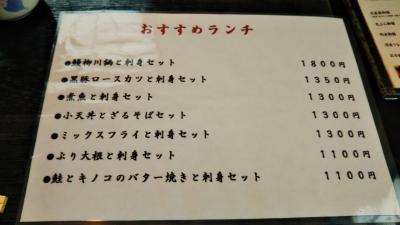 おすすめランチ
●鰻柳川鍋と刺身セット 1800円
●黒豚ロースカツと刺身セット 1350円
●煮魚と刺身セット 1300円
●小天丼とざるそばセット 1300円
●ミックスフライと刺身セット 1300円
●ぶり大根と刺身セット 1100円
●鮭とキノコのバター焼きと刺身セット 1100円